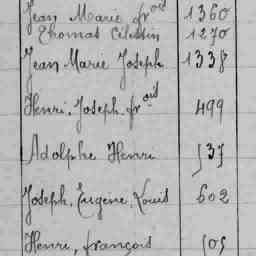 Jean Marie fr.ois 1360
Thomas Célestin 1270
Jean Marie Joseph 1338
Henri, Joseph fr.ois 499
Adolphe Henri 537
Joseph, Eugène, Louis 602
Henri, françois 505